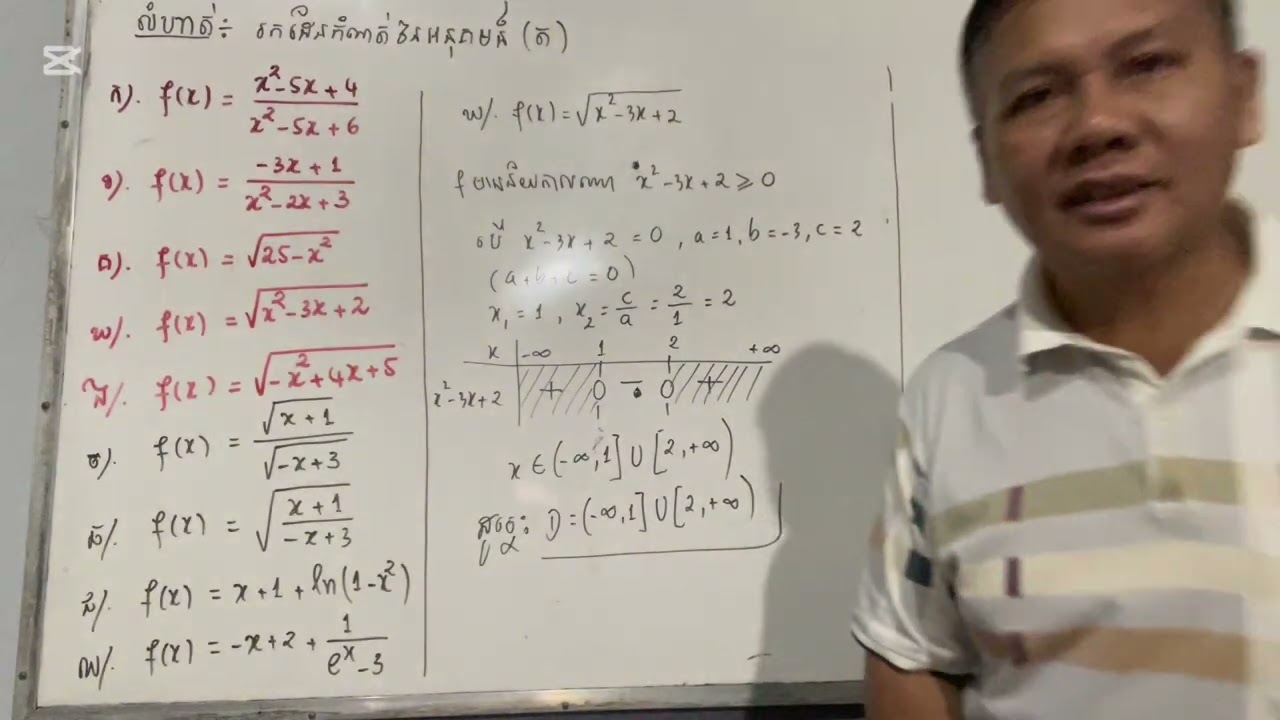 លំហាត់៖ រកដែនកំណត់នៃអនុគមន៍ (ត)
ក). f(x) = \frac{x²-5x+4}{x²-5x+6}
ខ). f(x) = \frac{-3x+1}{x²-2x+3}
គ). f(x) = √(25-x²)
ឃ/. f(x) = √(x²-3x+2)
ង/. f(x) = √(-x²+4x+5)
ច). f(x) = \frac{√(x+1)}{√(-x+3)}
ឆ/. f(x) = √(\frac{x+1}{-x+3})
ជ/. f(x) = x+1+ln(1-x²)
ឈ/. f(x) = -x+2+\frac{1}{e^x-3}
ឃ/. f(x) = √(x²-3x+2)
f មានន័យកាលណា x²-3x+2 ⩾ 0
បើ x²-3x+2 = 0 , a=1, b=-3, c=2
(a+b+c=0)
x₁ = 1 , x₂ = \frac{c}{a} = \frac{2}{1} = 2
x -∞ 1 2 +∞
x²-3x+2 + 0 - 0 +
x ∈ (-∞,1] ∪ [2,+∞)
ដូចនេះ D = (-∞,1] ∪ [2,+∞)